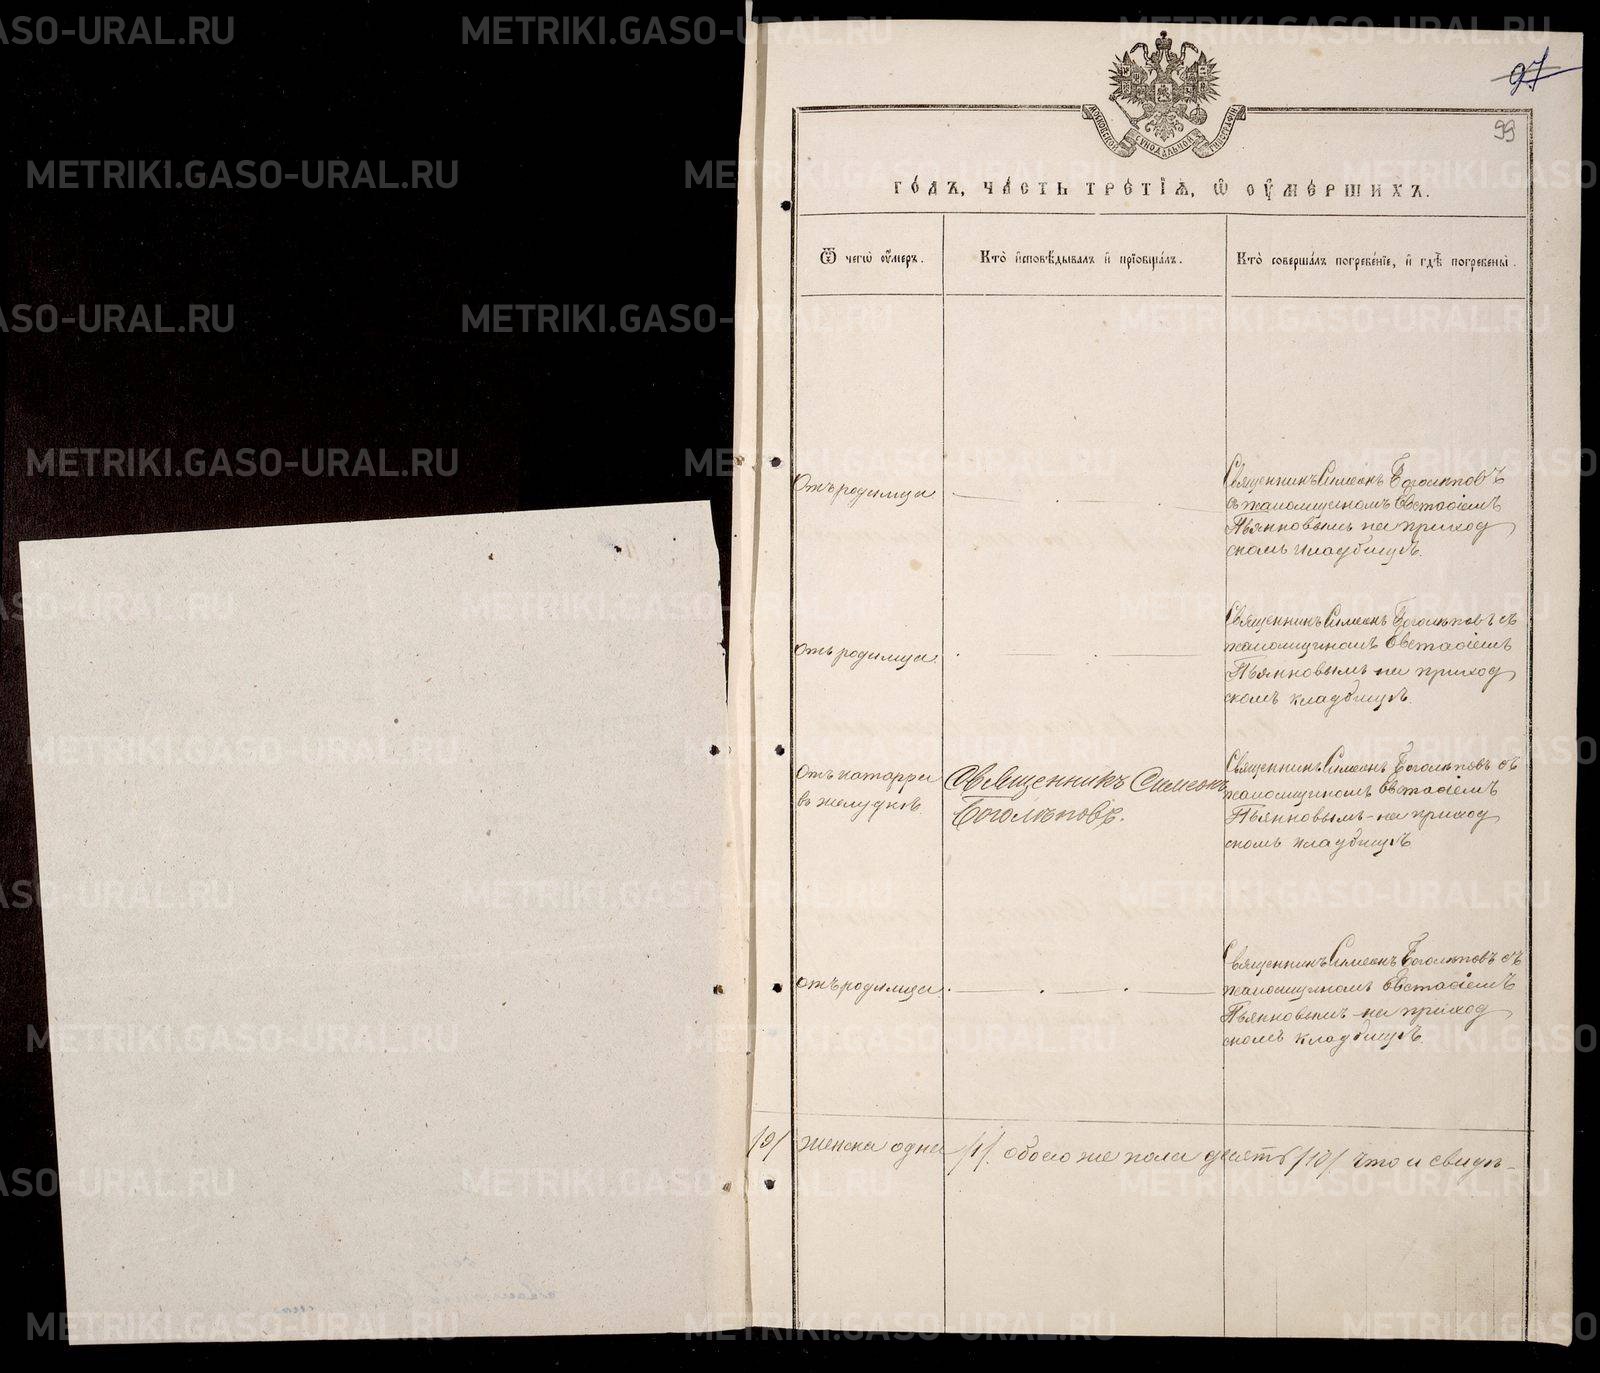 97
99
МОСКОВСКОЙ СѴНОДАЛЬНОЙ ТИПОГРАФІИ
ГОДЪ, ЧАСТЬ ТРЕТІѦ, Ѡ ОУМЕРШИХЪ.
Ѿ чегѡ оумеръ.
Кто исповѣдывалъ и пріобщалъ.
Кто совершалъ погребеніе, и гдѣ погребены.
Отъ родимца
Священникъ Симеонъ Боголѣповъ
съ псаломщикомъ Евстафіемъ
Пьянковымъ на приход
скомъ кладбищѣ.
Отъ родимца
Священникъ Симеонъ Боголѣповъ съ
псаломщикомъ Евстафіемъ
Пьянковымъ на приход
скомъ кладбищѣ.
Отъ катарра
въ желудкѣ
Священникъ Симеонъ
Боголѣповъ.
Священникъ Симеонъ Боголѣповъ съ
псаломщикомъ Евстафіемъ
Пьянковымъ на приход
скомъ кладбищѣ
Отъ родимца
Священникъ Симеонъ Боголѣповъ съ
псаломщикомъ Евстафіемъ
Пьянковымъ на приход
скомъ кладбищѣ
/9/ женска одна /1/. обоего же пола десять /10/ что и свидѣ-
METRIKI.GASO-URAL.RU